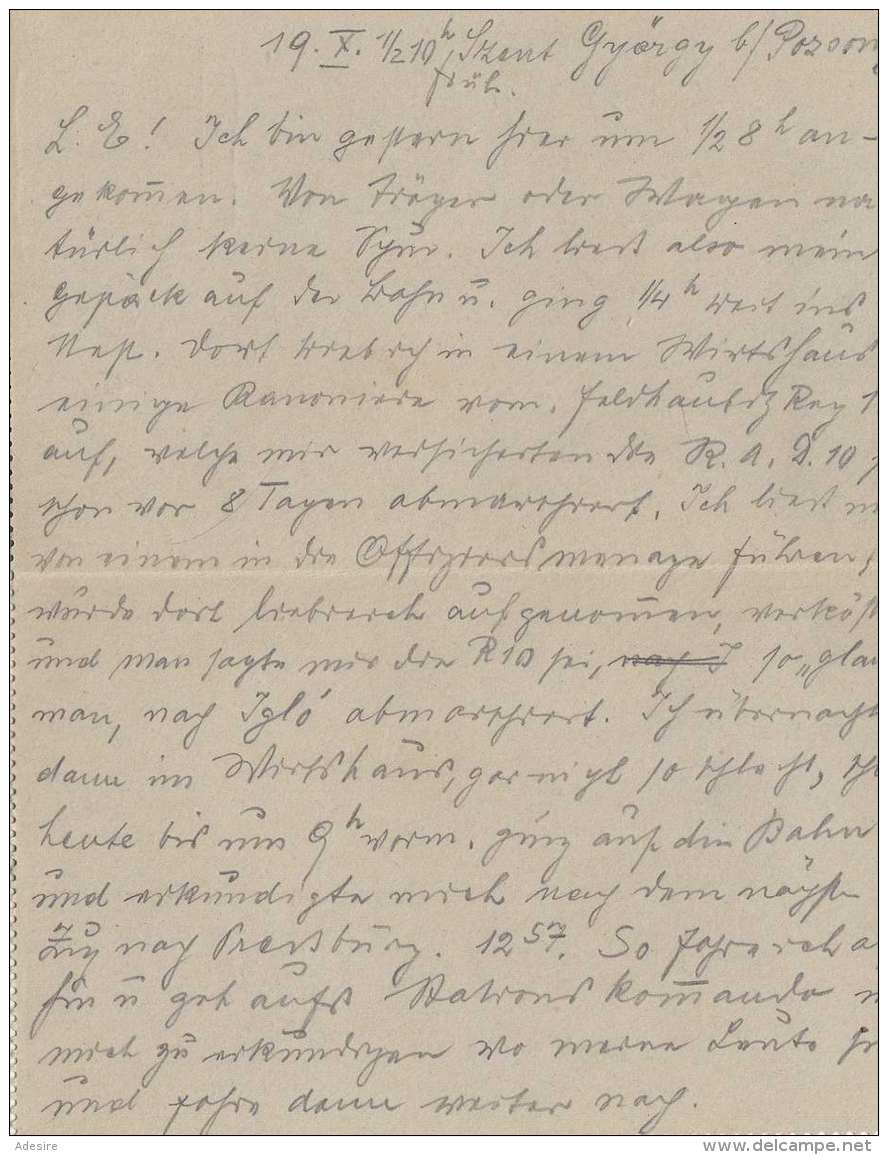 19. X. 1/2 10 h Szent György b/ Pozson
früh.
L. E! Ich bin gestern hier um 1/2 8 h an-
gekommen. Von Träger oder Wagen na
türlich keine Spur. Ich ließ also mein
Gepäck auf der Bahn u. ging 1/4 h weit ins
Nest. Dort trieb ich in einem Wirtshaus
einige Kanoniere vom. Feldhaubitz Reg 1
auf, welche mir versicherten die R. A. D. 10
schon vor 8 Tagen abmarschiert. Ich ließ
von einem in die Offiziersmenage führen,
wurde dort liebreich aufgenommen, verköst
und man sagte mir die R 10 sei, nach I so „glau
man, nach Igló abmarschiert. Ich übernacht
dann im Wirtshaus, gar nicht so schlecht,
heute bis um 9 h vorm. ging auf die Bahn
und erkundigte mich nach dem nächst
Zug nach Pressburg. 12 57. So fahre ich a
hin u geh aufs Stationskommando
mich zu erkundigen wo meine Leute
und fahre dann weiter nach.
Adesire
www.delcampe.net